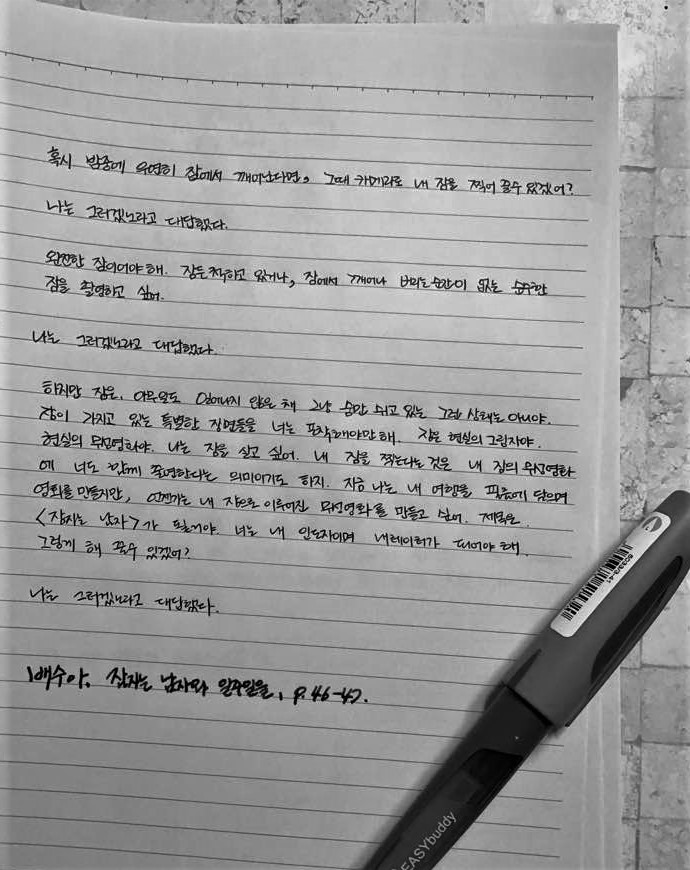 혹시 밤중에 우연히 잠에서 깨어난다면, 그때 카메라로 내 잠을 찍어 줄수 있겠어?
나는 그러겠노라고 대답했다.
완전한 잠이어야 해. 잠든 척하고 있거나, 잠에서 깨어나 버리는 순간이 없는 순수한
잠을 촬영하고 싶어.
나는 그러겠노라고 대답했다.
하지만 잠은, 아무일도 일어나지 않은 채 그냥 숨만 쉬고 있는 그런 상태는 아니야.
잠이 가지고 있는 특별한 장면들을 너는 포착해야만 해. 잠은 현실의 그림자야.
현실의 무성영화야. 나는 잠을 살고 싶어. 내 잠을 찍는다는 것은 내 잠의 무성영화
에 너도 함께 출연한다는 의미이기도 하지. 지금 나는 내 여행을 필름에 담으며
영화를 만들지만, 언젠가는 내 잠으로 이루어진 무성영화를 만들고 싶어. 제목은
<잠자는 남자>가 될거야. 너는 내 인도자이며 내레이터가 되어야 해.
그렇게 해 줄수 있겠어?
나는 그러겠노라고 대답했다.
배수아, 잠자는 남자와 일주일을, p.46-47.
5033/3-41
EASYbuddy